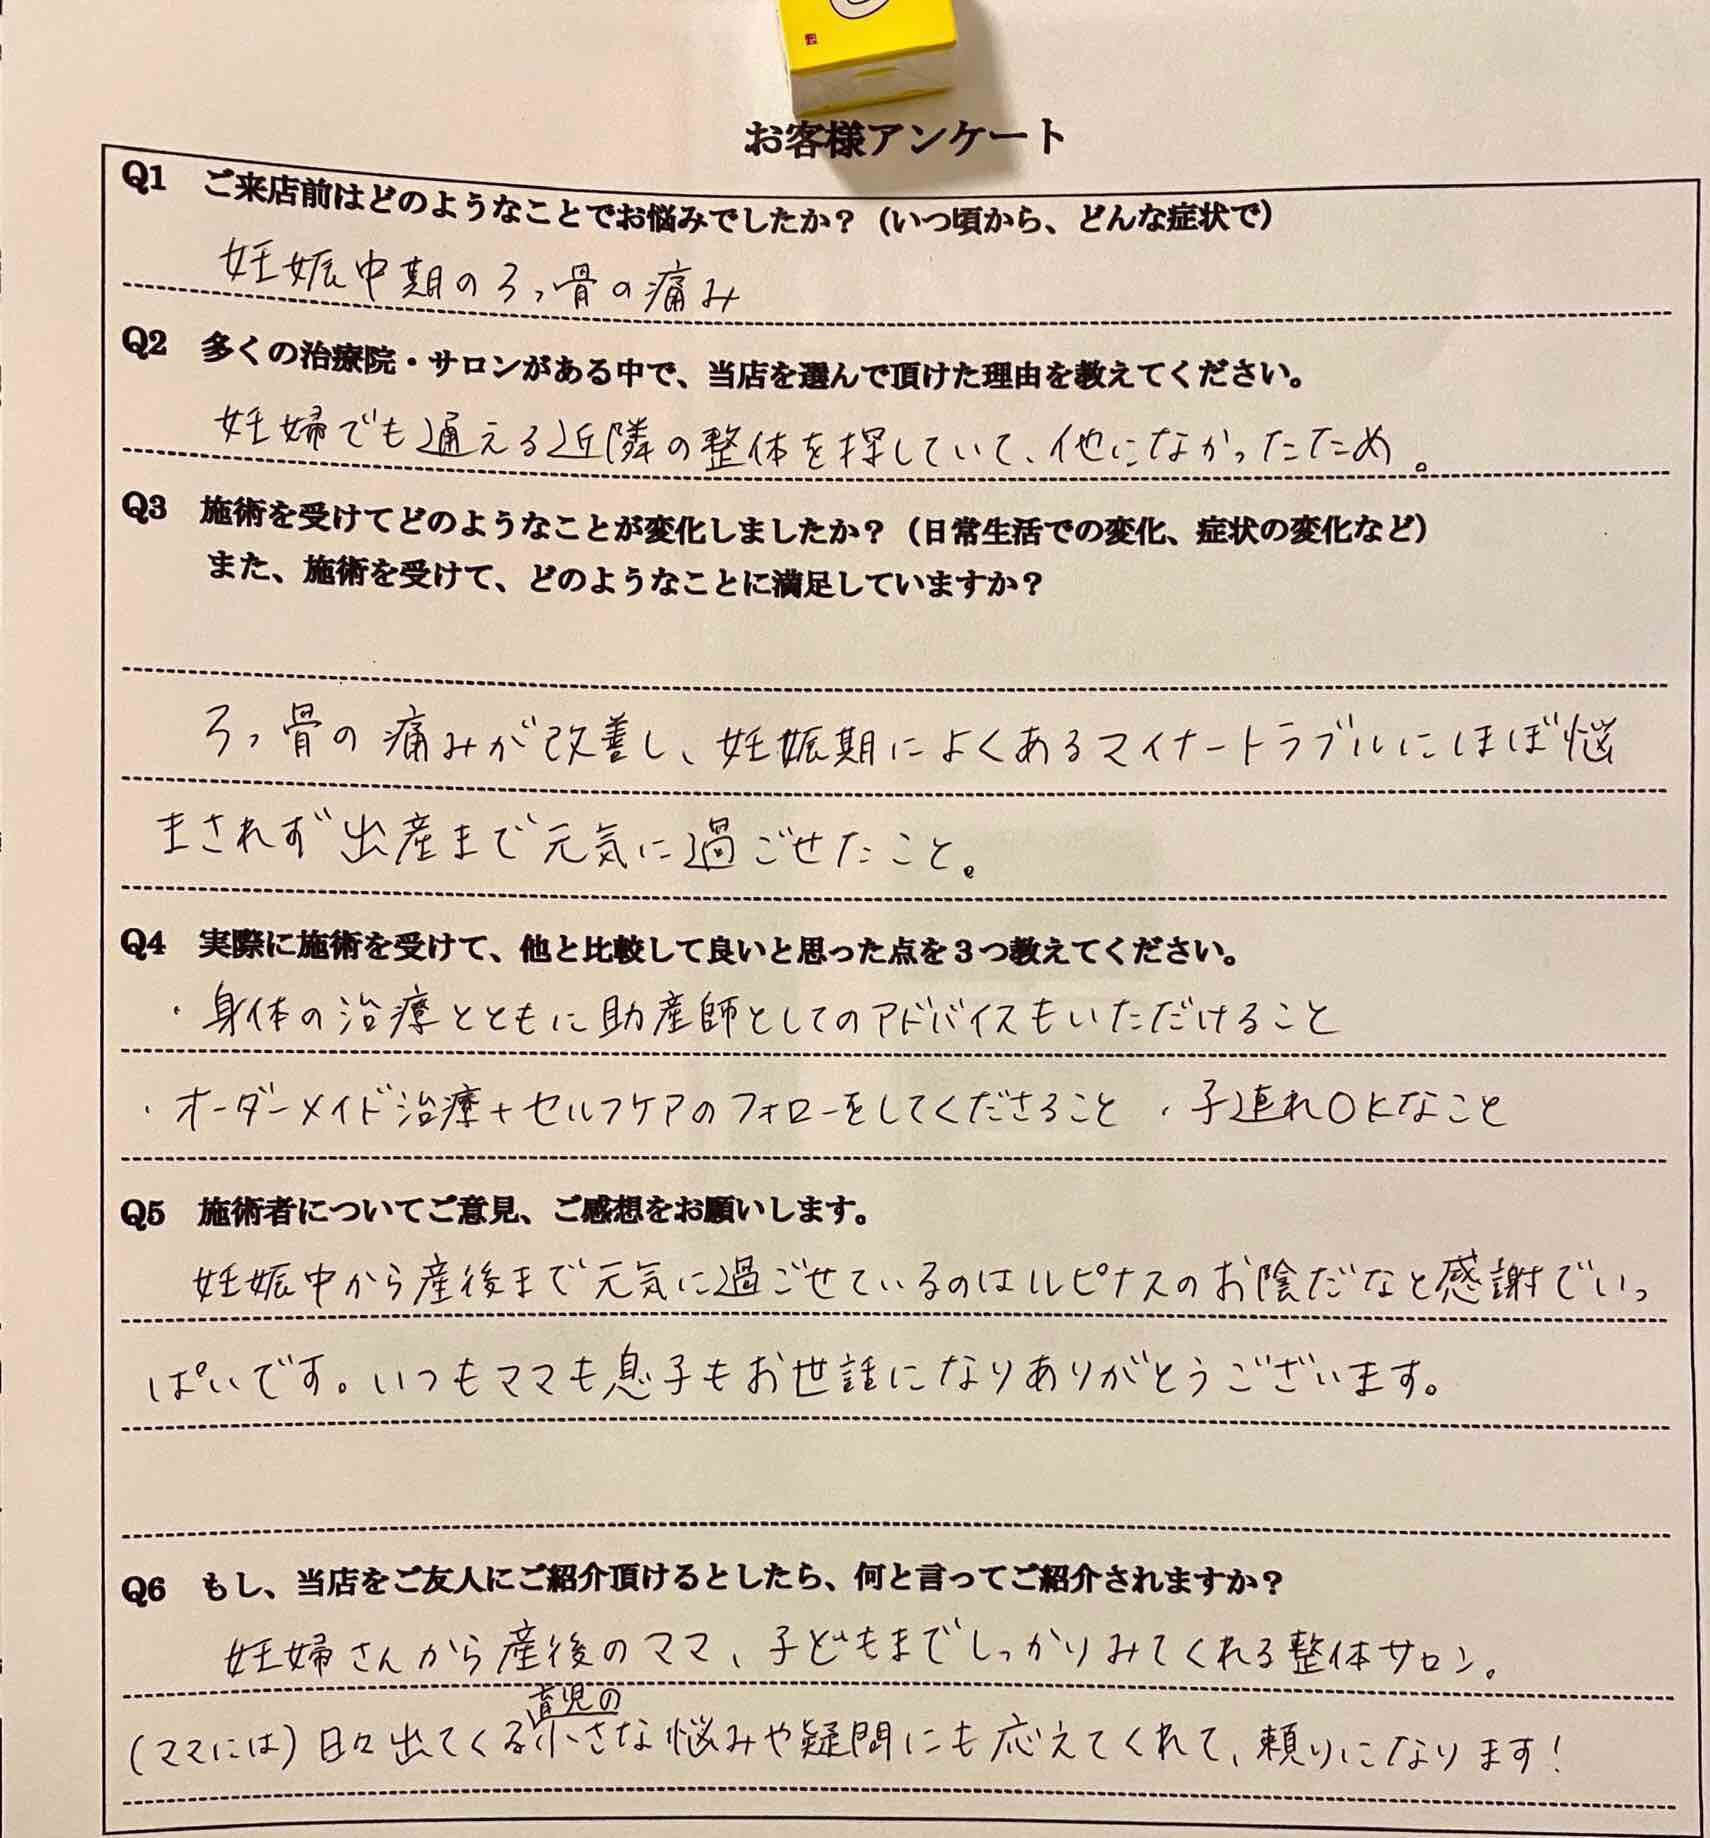 お客様アンケート
Q1 ご来店前はどのようなことでお悩みでしたか？（いつ頃から、どんな症状で）
妊娠中期のろっ骨の痛み
Q2 多くの治療院・サロンがある中で、当店を選んで頂けた理由を教えてください。
妊婦でも通える近隣の整体を探していて、他になかったため。
Q3 施術を受けてどのようなことが変化しましたか？（日常生活での変化、症状の変化など）
また、施術を受けて、どのようなことに満足していますか？
ろっ骨の痛みが改善し、妊娠期によくあるマイナートラブルにほぼ悩
まされず出産まで元気に過ごせたこと。
Q4 実際に施術を受けて、他と比較して良いと思った点を３つ教えてください。
・身体の治療とともに助産師としてのアドバイスもいただけること
・オーダーメイド治療+セルフケアのフォローをしてくださること ・子連れOKなこと
Q5 施術者についてご意見、ご感想をお願いします。
妊娠中から産後まで元気に過ごせているのはルピナスのお陰だなと感謝でいっ
ぱいです。いつもママも息子もお世話になりありがとうございます。
Q6 もし、当店をご友人にご紹介頂けるとしたら、何と言ってご紹介されますか？
妊婦さんから産後のママ、子どもまでしっかりみてくれる整体サロン。
育児の
(ママには)日々出てくる小さな悩みや疑問にも応えてくれて、頼りになります！